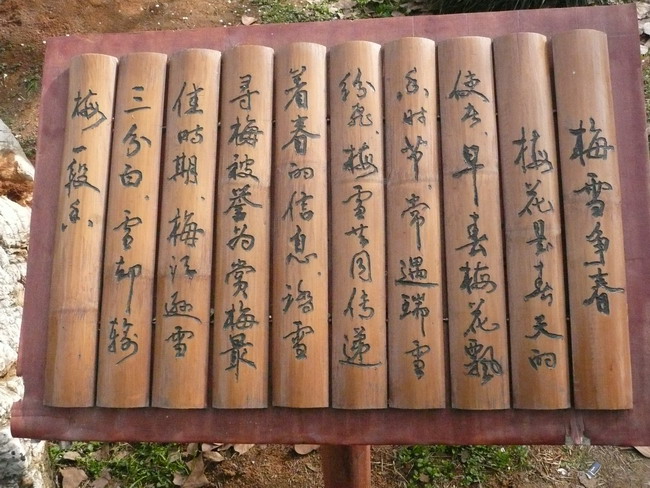 梅雪争春
梅花是春天的
使者，早春梅花飘
香时节，常遇瑞雪
纷飞，梅雪共同传递
着春的信息，踏雪
寻梅被誉为赏梅最
佳时期，梅须逊雪
三分白，雪却输
梅一段香。